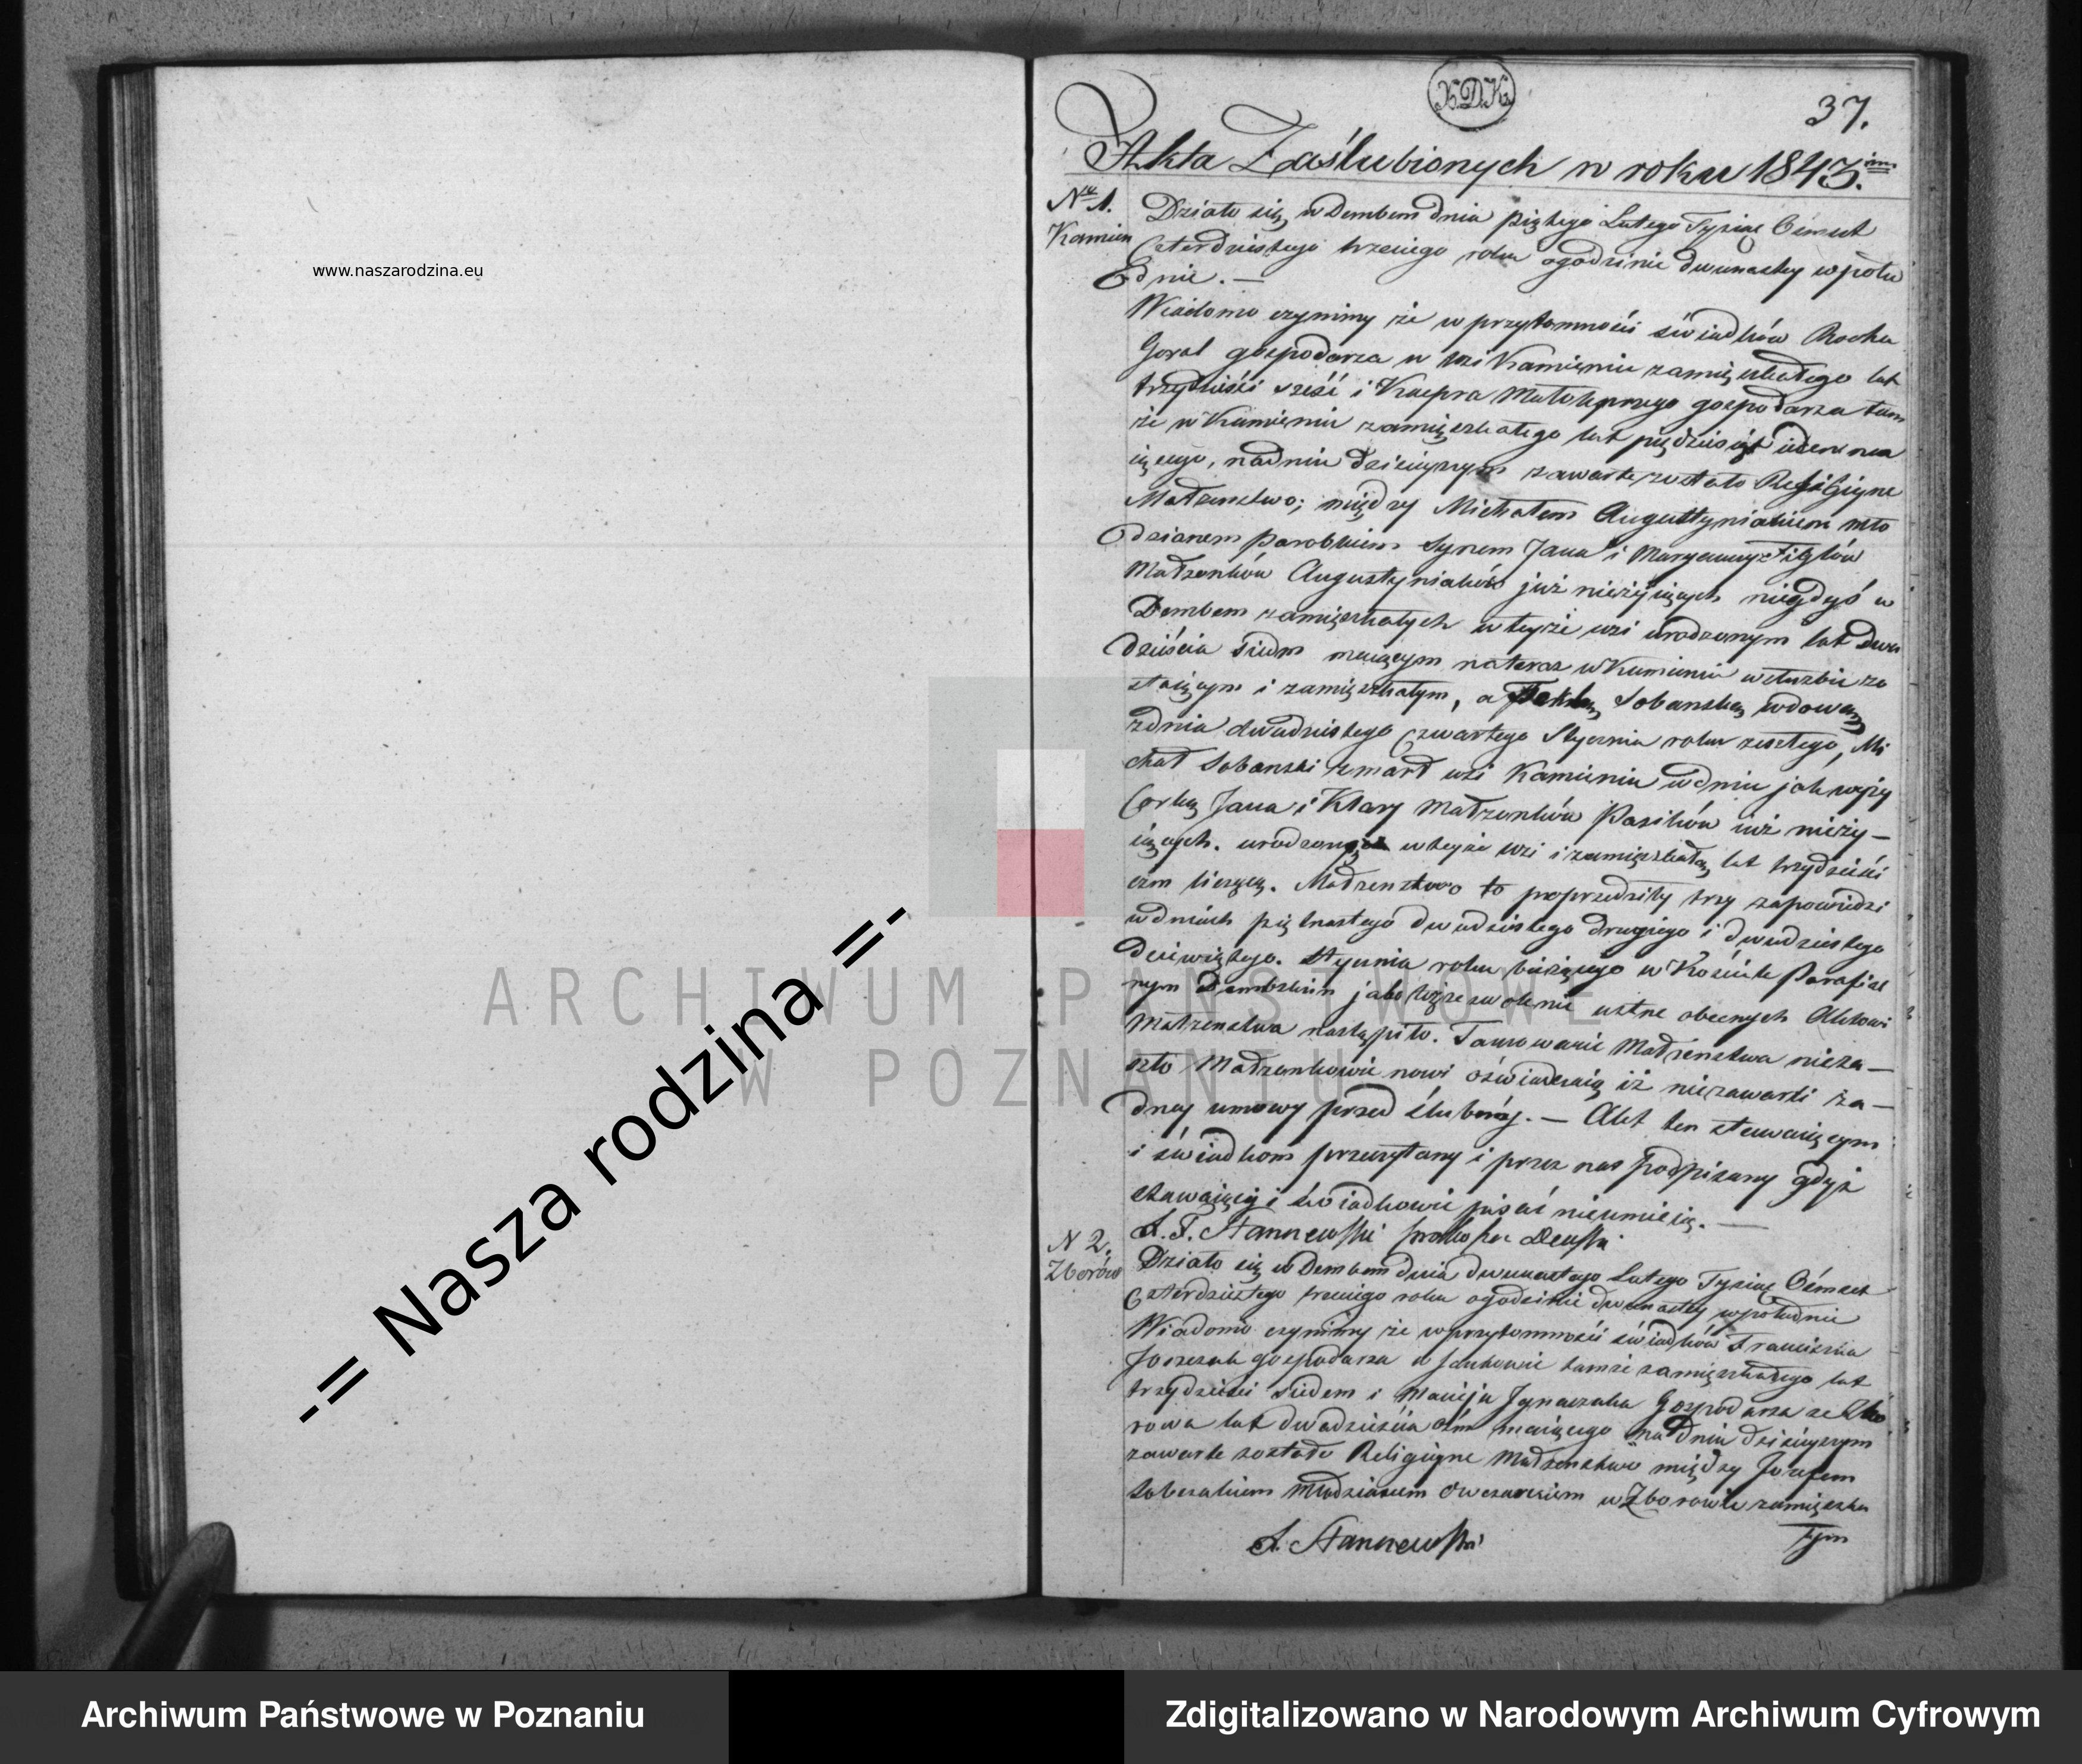 X.D.K.
37.
Akta Zaślubionych w roku 1843.im
Nr 1.
Kamien
Działo się w Dembem dnia piątego Lutego Tysiąc Ośmset
Czterdziestego trzeciego roku o godzinie dwunastey w połu
dnie. —
Wiadomo czynimy że w przytomności świadków Rocha
Goral gospodarza w wsi Kamieniu zamięszkałego lat
trzydzieści sześć i Kacpra gospodarza tam
że w Kamieniu zamięszkałego lat piędziesiąt
iącego, na dniu dzisieyszym zawarte zostało Religiyne
Małżenstwo; między Michałem Augustyniakiem mło
dzianem parobkiem synem Jana i Maryanny z
Małżonków Augustyniaków już nieżyiących niegdyś w
Dembem zamięszkałych w teyże wsi urodzonym lat dwa
dzieścia siedm maiącym na teraz w Kamieniu w służbie zo
staiącym i zamięszkałym, a Teklą Sobanską wdową
z dnia dwudziestego czwartego Stycznia roku zeszłego, Mi
chał Sobanski zmarł wsi Kamieniu w dniu jak wyży
Corką Jana i Klary Małżonków Pasików iuż nieży—
iących. urodzoną w teyże wsi i zamięszkałą lat trzydzieści
ośm liczącą. Małżenstwo to poprzedziły trzy zapowiedzi
w dniach piętnastego dwudziestego drugiego i dwudziestego
dziewiątego. Stycznia roku bieżącego w Kościele Parafial
nym Dembskim jako też zezwolenie ustne obecnych Aktowi
Małżenstwa nastąpiło. Tamowanie Małżenstwa nieza—
szło Małżonkowie nowi oświadczaią iż niezawarli ża—
dney umowy przed ślubney. — Akt ten stawaiącym
i świadkom przeczytany i przez nas podpisany gdyż
stawaiący i świadkowie pisać nieumieią. —
N 2.
Zborów
Działo się w Dembem dnia dwunastego Lutego Tysiąc Ośmset
Czterdziestego trzeciego roku o godzinie dwunastey w południe
Wiadomo czynimy że w przytomności świadków Franciszka
gospodarza w tamże zamięszkałego lat
trzydzieści siedem i Macieja Ignaczaka Gospodarza ze Zbo
rowa lat dwadzieścia ośm maiącego na dniu dzisieyszym
zawarte zostało Religiyne Małżenstwo między Józefem
młodzianem owczarkiem w Zborowie zamięszka
łym
www.naszarodzina.eu
-= Nasza rodzina =-
ARCHIWUM PAŃSTWOWE
W POZNANIU
Archiwum Państwowe w Poznaniu
Zdigitalizowano w Narodowym Archiwum Cyfrowym